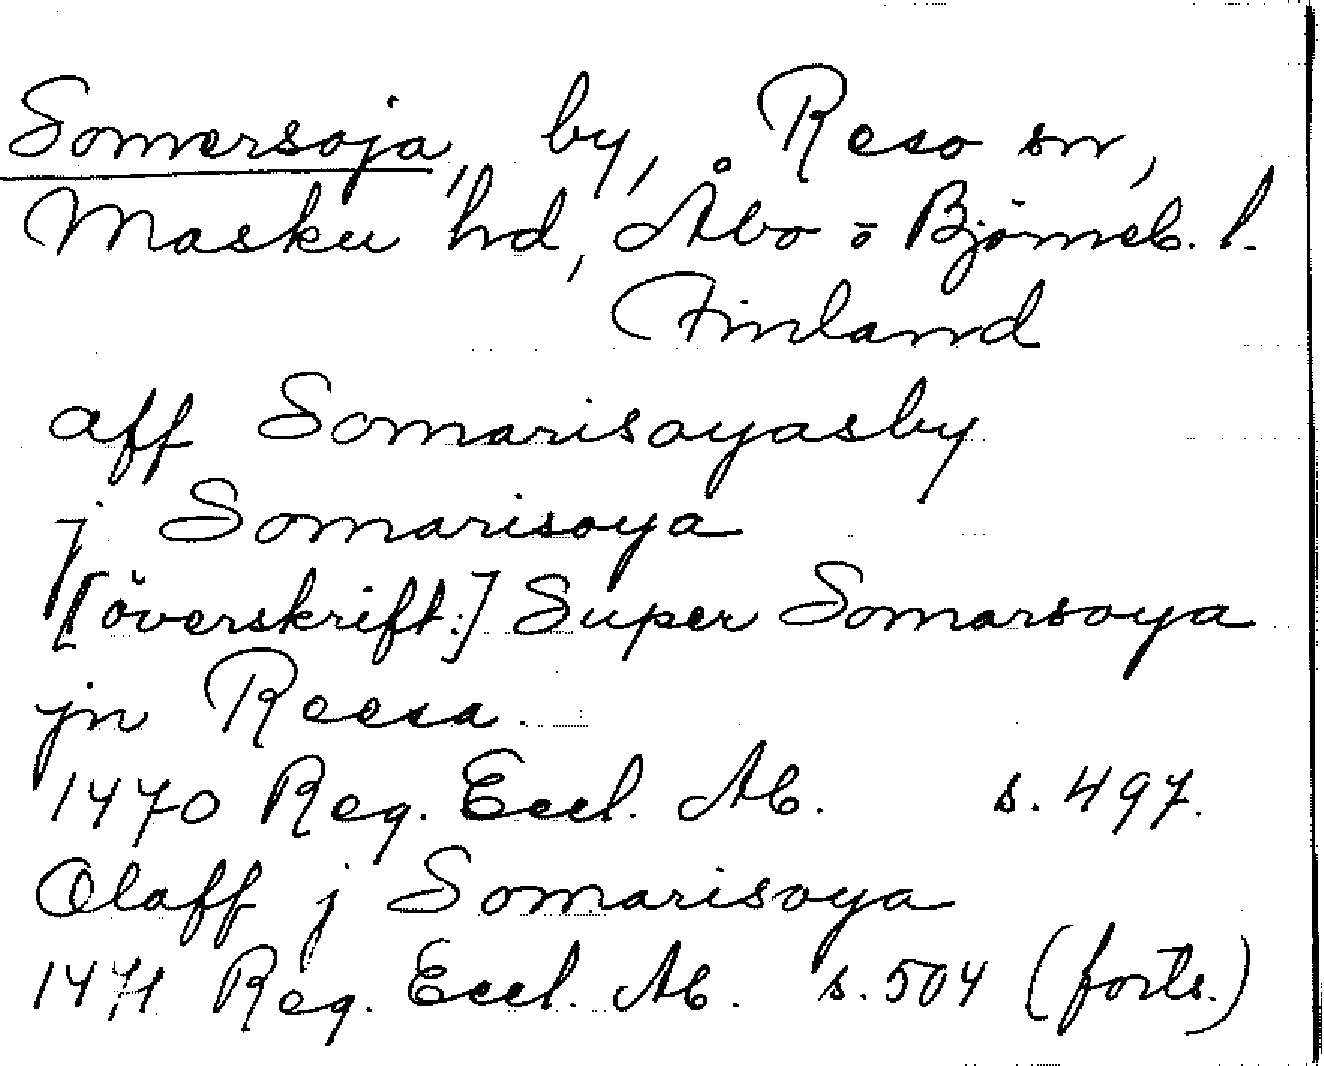 Somersoja, by, Reso sn,
Masku hd, Åbo o Björneb. l.
Finland
aff Somarisoyasby
j Somarisoya
[överskrift:] Super Somarsoya
jn Reesa
1470 Reg. Eccl. Ab. s. 497.
Olaff j Somarisoya
1471 Reg. Eccl. Ab. s. 504 (forts.)